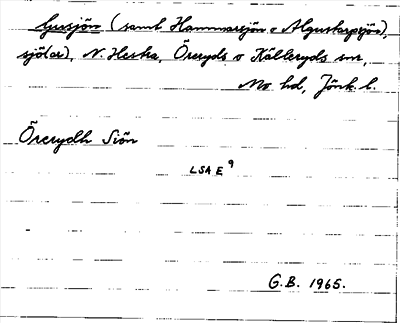 Ljussjön (samt Hammarsjön o Algustorpsjön),
sjö(ar), N. Hestra, Öreryds o Kållerryds snr,
Mo hd, Jönk. l.
Örerydh Siön
LSA E⁹
G.B. 1965.